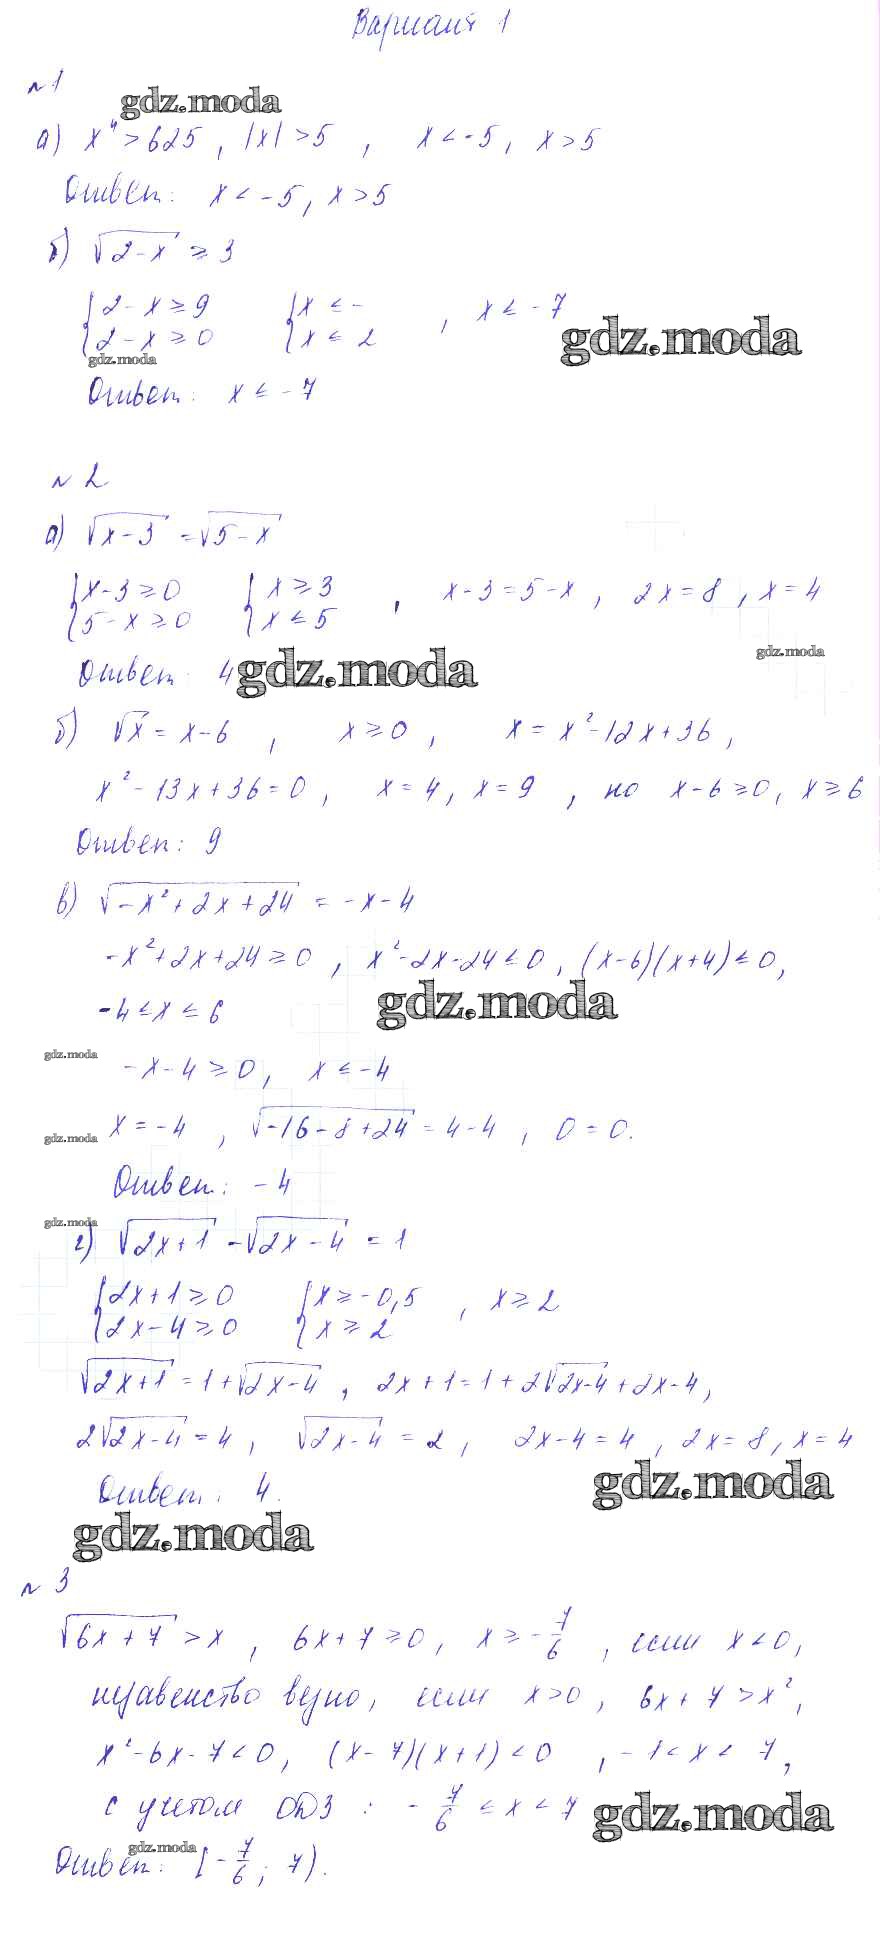 Вариант 1
№1
gdz.moda
а) x⁴ > 625, |x| > 5, x < -5, x > 5
Ответ: x < -5, x > 5
б) √(2-x) ≥ 3
{2-x ≥ 9 {x ≤ -
, x ≤ -7
{2-x ≥ 0 {x ≤ 2
gdz.moda
gdz.moda
Ответ: x ≤ -7
№2
а) √(x-3) = √(5-x)
{x-3 ≥ 0 {x ≥ 3
, x-3=5-x, 2x=8, x=4
{5-x ≥ 0 {x ≤ 5
gdz.moda
Ответ: 4
gdz.moda
б) √x = x-6, x ≥ 0, x = x²-12x+36,
x²-13x+36=0, x=4, x=9, но x-6 ≥ 0, x ≥ 6
Ответ: 9
в) √(-x²+2x+24) = -x-4
-x²+2x+24 ≥ 0, x²-2x-24 ≤ 0, (x-6)(x+4) ≤ 0,
-4 ≤ x ≤ 6
gdz.moda
gdz.moda
-x-4 ≥ 0, x ≤ -4
gdz.moda
x = -4, √(-16-8+24) = 4-4, 0=0.
Ответ: -4
gdz.moda
г) √(2x+1) - √(2x-4) = 1
{2x+1 ≥ 0 {x ≥ -0,5
, x ≥ 2
{2x-4 ≥ 0 {x ≥ 2
√(2x+1) = 1+√(2x-4), 2x+1=1+2√(2x-4)+2x-4,
2√(2x-4) = 4, √(2x-4) = 2, 2x-4=4, 2x=8, x=4
Ответ: 4.
gdz.moda
gdz.moda
№3
√(6x+7) > x, 6x+7 ≥ 0, x ≥ -7/6, если x < 0,
неравенство верно, если x > 0, 6x+7 > x²,
x²-6x-7 < 0, (x-7)(x+1) < 0, -1 < x < 7,
с учетом ОДЗ: -7/6 ≤ x < 7
gdz.moda
gdz.moda
Ответ: [-7/6; 7).